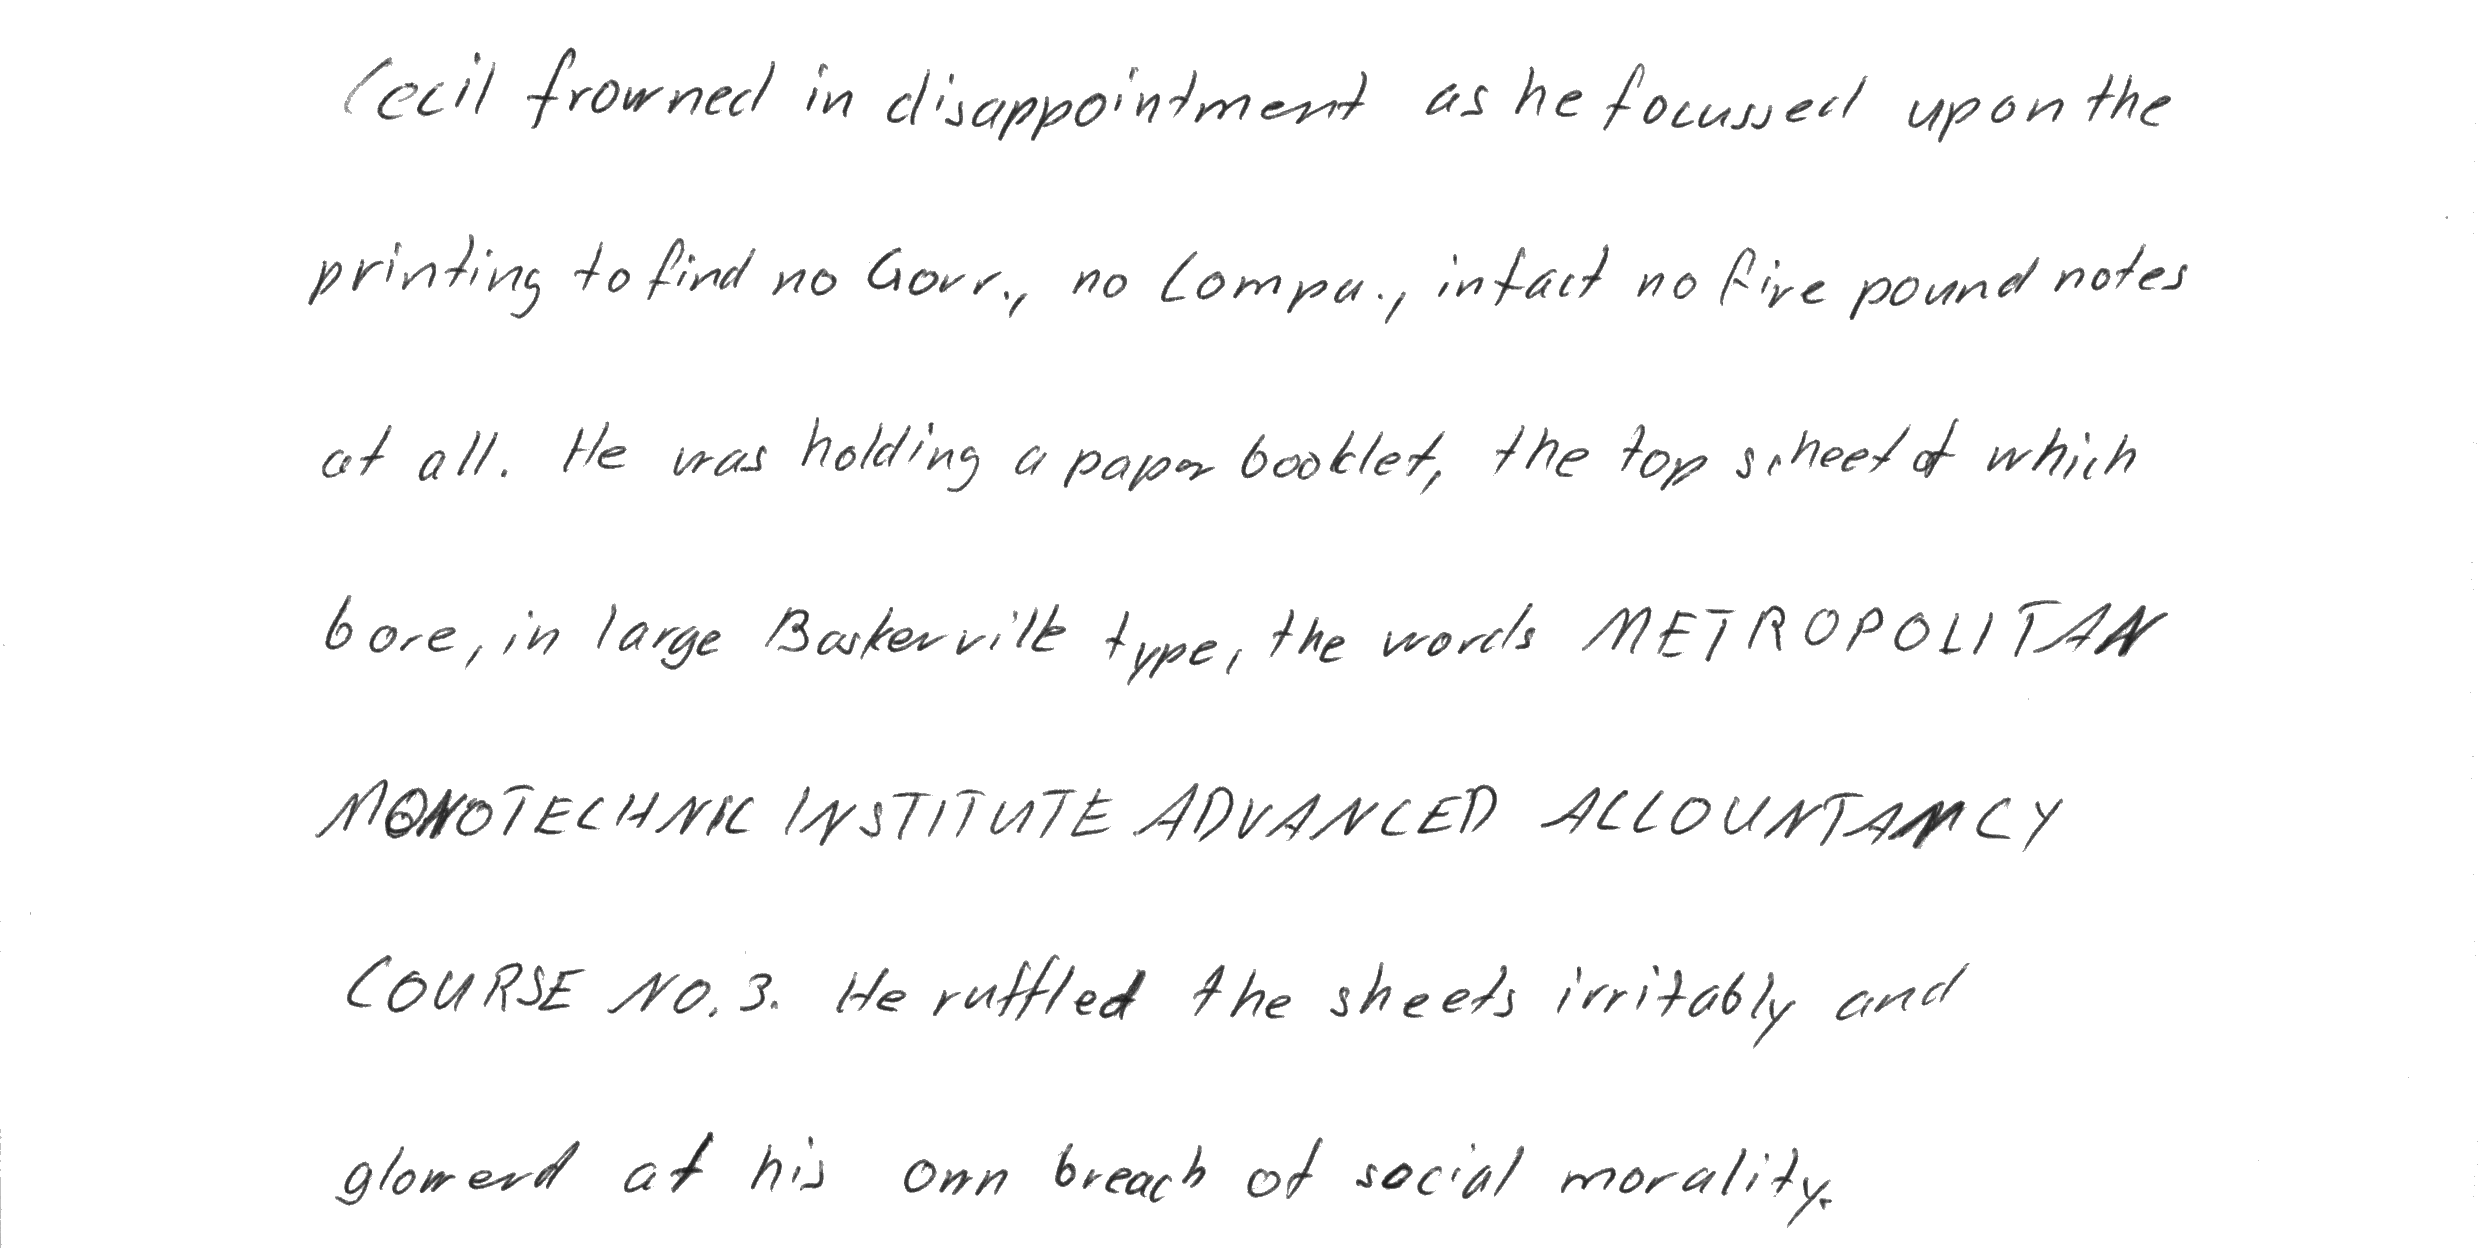 Cecil frowned in disappointment as he focussed upon the
printing to find no Govr., no Compa., in fact no five pound notes
at all. He was holding a paper booklet, the top scheet of which
bore, in large Baskerville type, the words METROPOLITAN
MONOTECHNIC INSTITUTE ADVANCED ACCOUNTANCY
COURSE NO. 3. He ruffled the sheets irritably and
glowerd at his own breach of social morality.